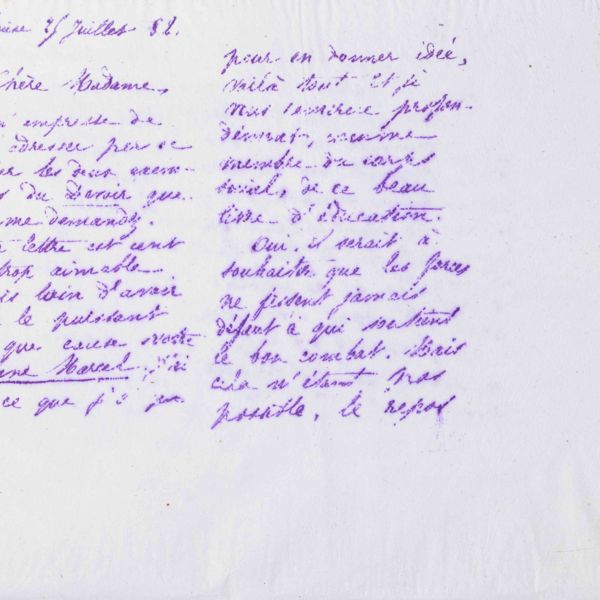 25 Juillet 82.
Chère Madame,
m'empresse de
adresser par ce
les deux exem-
du Devoir que
me demandez.
lettre est cent
trop aimable
loin d'avoir
le puissant
que cause votre
Marcel. J'ai
ce que j'ai pu
pour en donner idée,
voilà tout et je
vous remercie profon-
dément, comme
membre du corps
social, de ce beau
livre d'éducation.
Oui, il serait à
souhaiter que les forces
ne fissent jamais
défaut à qui soutient
le bon combat. Mais
cela n'étant pas
possible, le repos